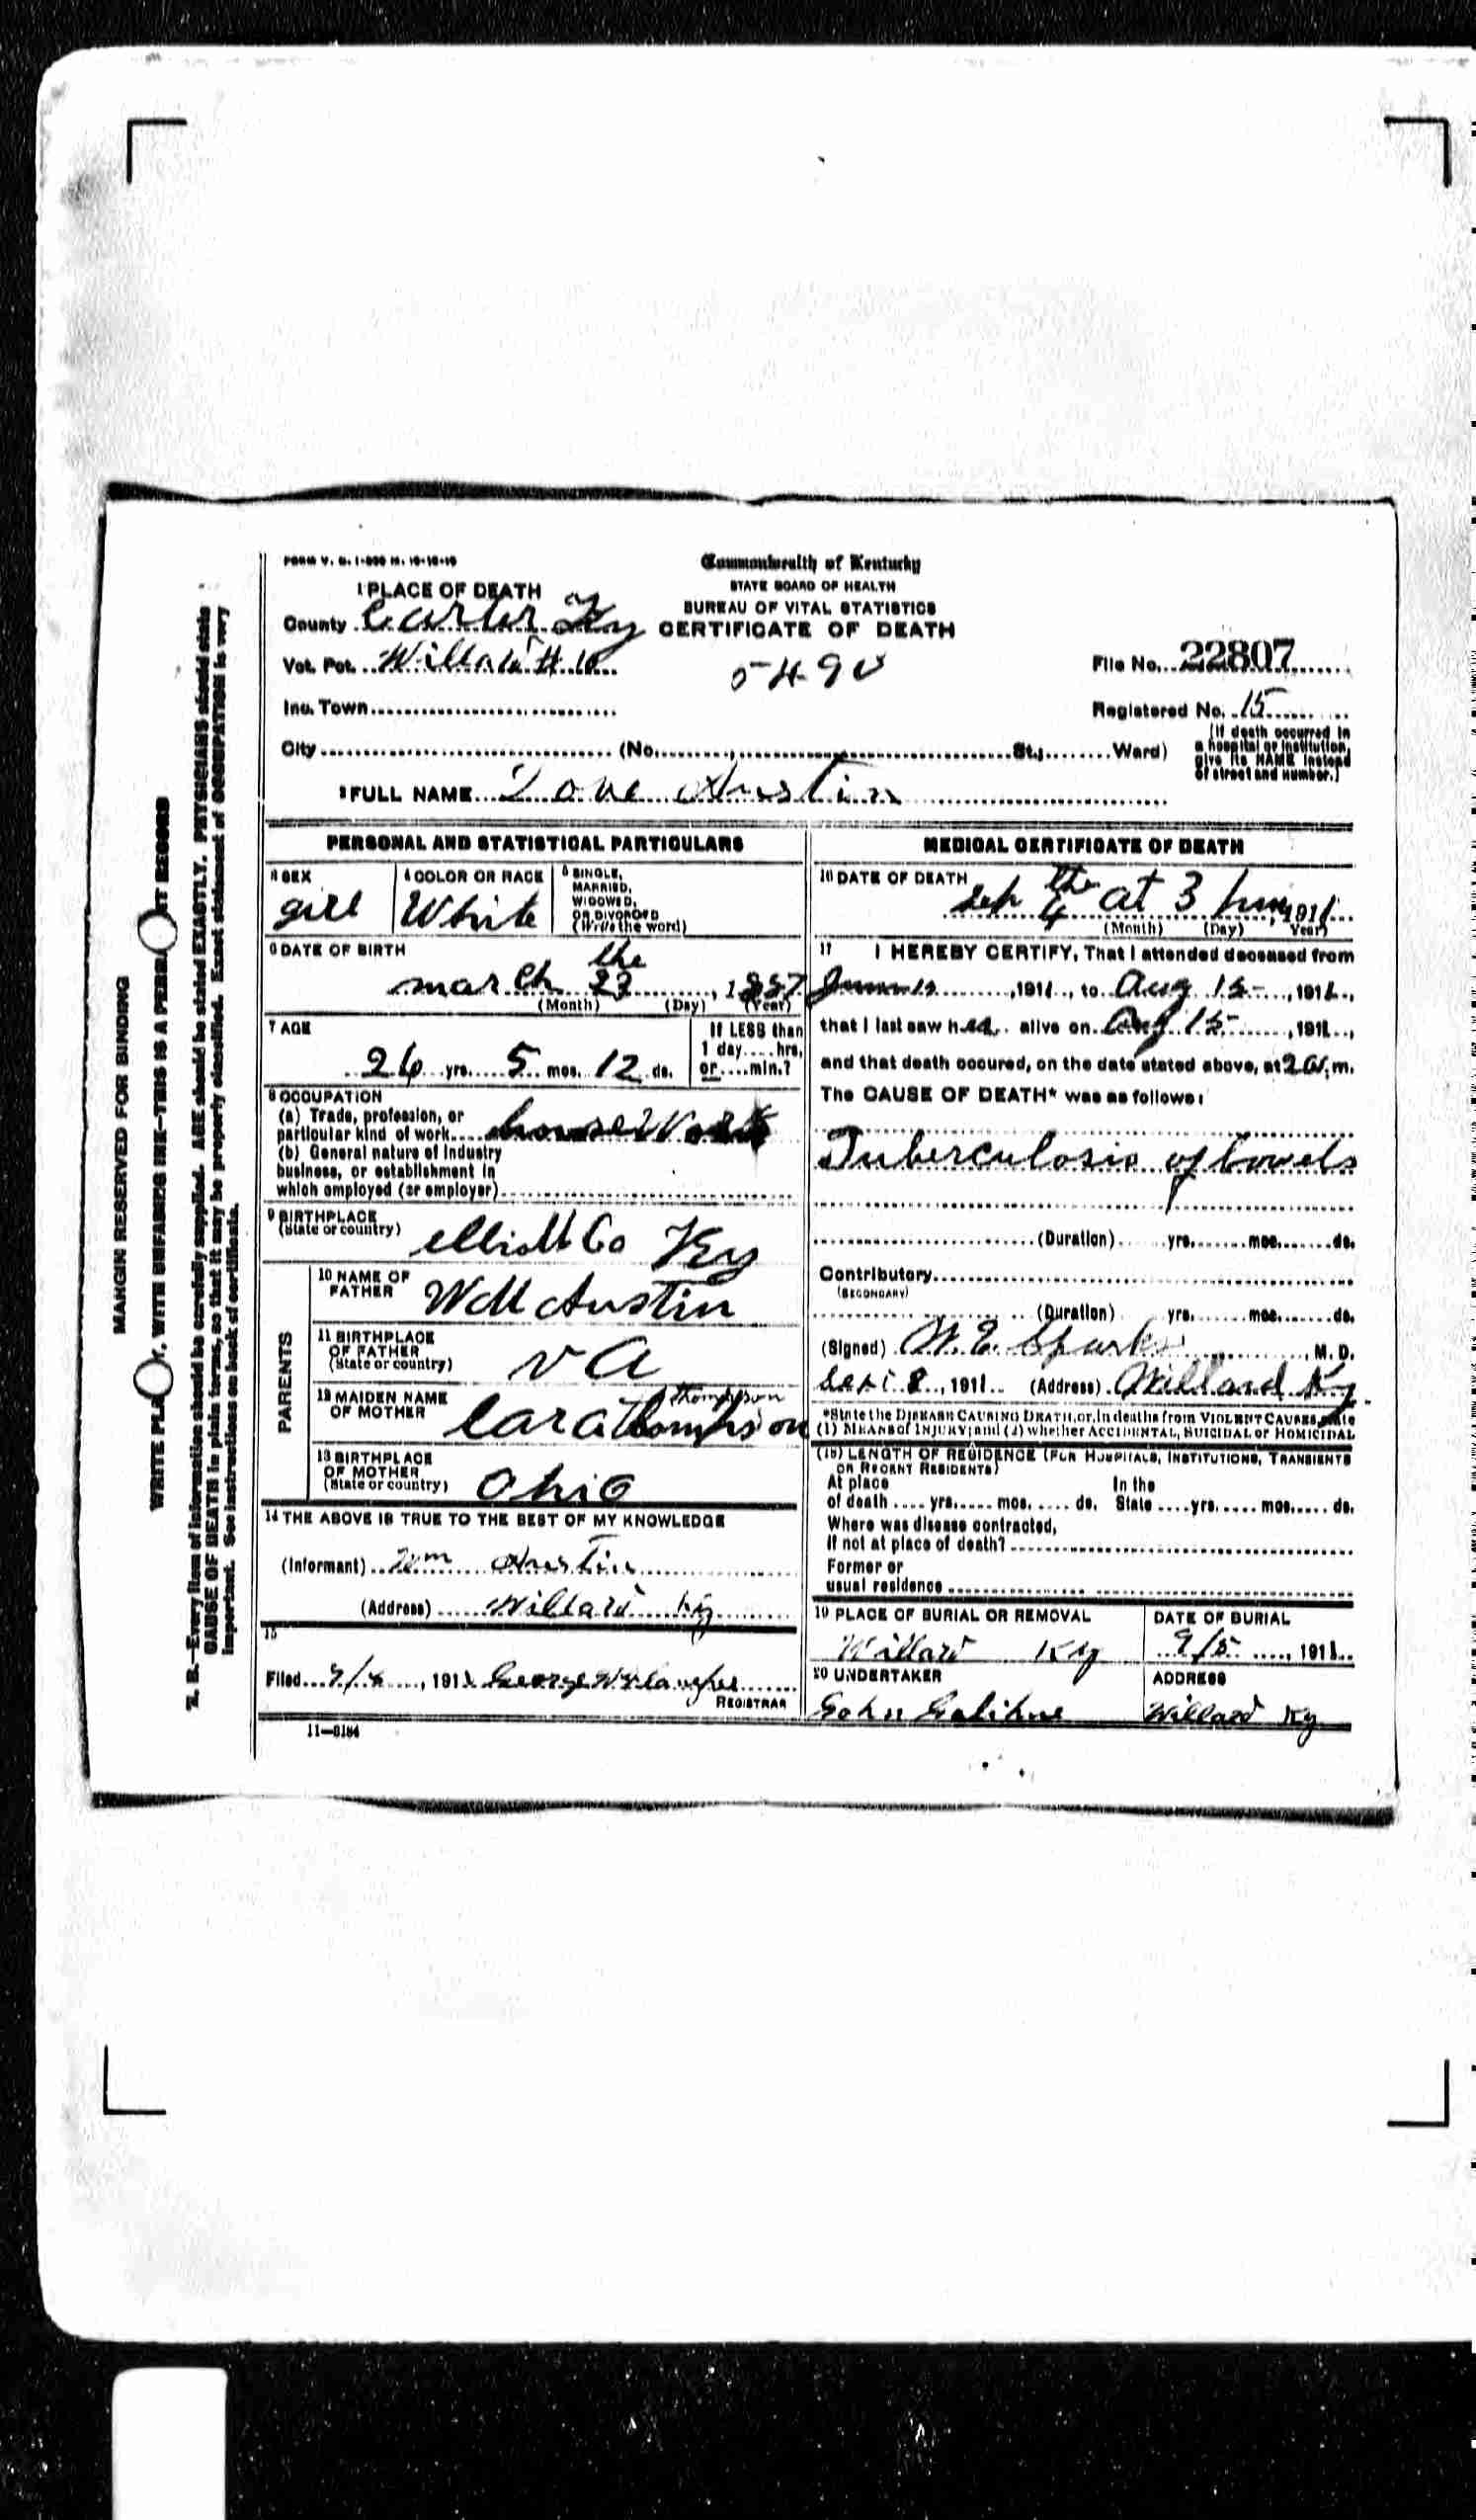 MARGIN RESERVED FOR BINDING
WRITE PLA Y, WITH UNFADING INK—THIS IS A PERMA NT RECORD
N. B.—Every item of information should be carefully supplied. AGE should be stated EXACTLY. PHYSICIANS should state
CAUSE OF DEATH in plain terms, so that it may be properly classified. Exact statement of OCCUPATION is very
important. See instructions on back of certificate.
Commonwealth of Kentucky
STATE BOARD OF HEALTH
BUREAU OF VITAL STATISTICS
CERTIFICATE OF DEATH
1 PLACE OF DEATH
County Carter Ky
Vot. Pct. Willard # 10
Inc. Town
City (No. , St.; Ward)
File No. 22807
Registered No. 15
(If death occurred in
a hospital or institution,
give its NAME instead
of street and number.)
2 FULL NAME Austin
PERSONAL AND STATISTICAL PARTICULARS
3 SEX
girl
4 COLOR OR RACE
White
5 SINGLE,
MARRIED,
WIDOWED,
OR DIVORCED
(Write the word)
6 DATE OF BIRTH
march the 23, 1887
(Month) (Day) (Year)
7 AGE
26 yrs. 5 mos. 12 ds.
If LESS than
1 day....hrs.
or....min.?
8 OCCUPATION
(a) Trade, profession, or
particular kind of work housework
(b) General nature of industry
business, or establishment in
which employed (or employer)
9 BIRTHPLACE
(State or country) elliott Co Key
PARENTS
10 NAME OF
FATHER Austin
11 BIRTHPLACE
OF FATHER
(State or country) va
12 MAIDEN NAME
OF MOTHER thompson
Cara thompson
13 BIRTHPLACE
OF MOTHER
(State or country) Ohio
14 THE ABOVE IS TRUE TO THE BEST OF MY KNOWLEDGE
(Informant) Wm Austin
(Address) Willard Ky
15
Filed 9/6, 1911 George
REGISTRAR
11—3184
MEDICAL CERTIFICATE OF DEATH
16 DATE OF DEATH
Sep the 4 at 3 1911
(Month) (Day) Year)
17 I HEREBY CERTIFY, That I attended deceased from
1911, to Aug 15, 1911,
that I last saw her alive on Aug 15, 1911,
and that death occured, on the date stated above, at m.
The CAUSE OF DEATH* was as follows:
Tuberculosis of bowels
(Duration) yrs. mos. ds.
Contributory
(SECONDARY)
(Duration) yrs. mos. ds.
(Signed) W. E. Sparks, M. D.
Sept 8, 1911 (Address) Willard Ky
*State the DISEASE CAUSING DEATH, or, in deaths from VIOLENT CAUSES, state
(1) MEANS of INJURY; and (2) whether ACCIDENTAL, SUICIDAL or HOMICIDAL
(18) LENGTH OF RESIDENCE (FOR HOSPITALS, INSTITUTIONS, TRANSIENTS
OR RECENT RESIDENTS)
At place In the
of death .... yrs. .... mos. .... ds. State .... yrs. .... mos. .... ds.
Where was disease contracted,
If not at place of death?
Former or
usual residence
19 PLACE OF BURIAL OR REMOVAL
Willard Ky
DATE OF BURIAL
9/5, 1911
20 UNDERTAKER
John
ADDRESS
Willard Ky